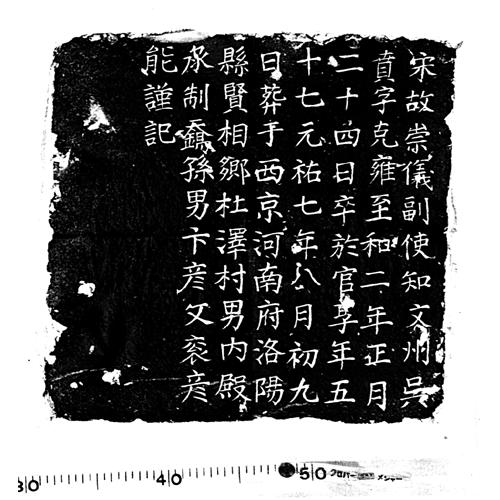 宋故崇儀副使知文州吳
賁字克雍至和二年正月
二十四日卒於官享年五
十七元祐七年八月初九
日葬于西京河南府洛陽
縣賢相鄉杜澤村男內殿
承制 孫男卞彥文袞彥
能謹記
30 40 50 クロバー メジャー